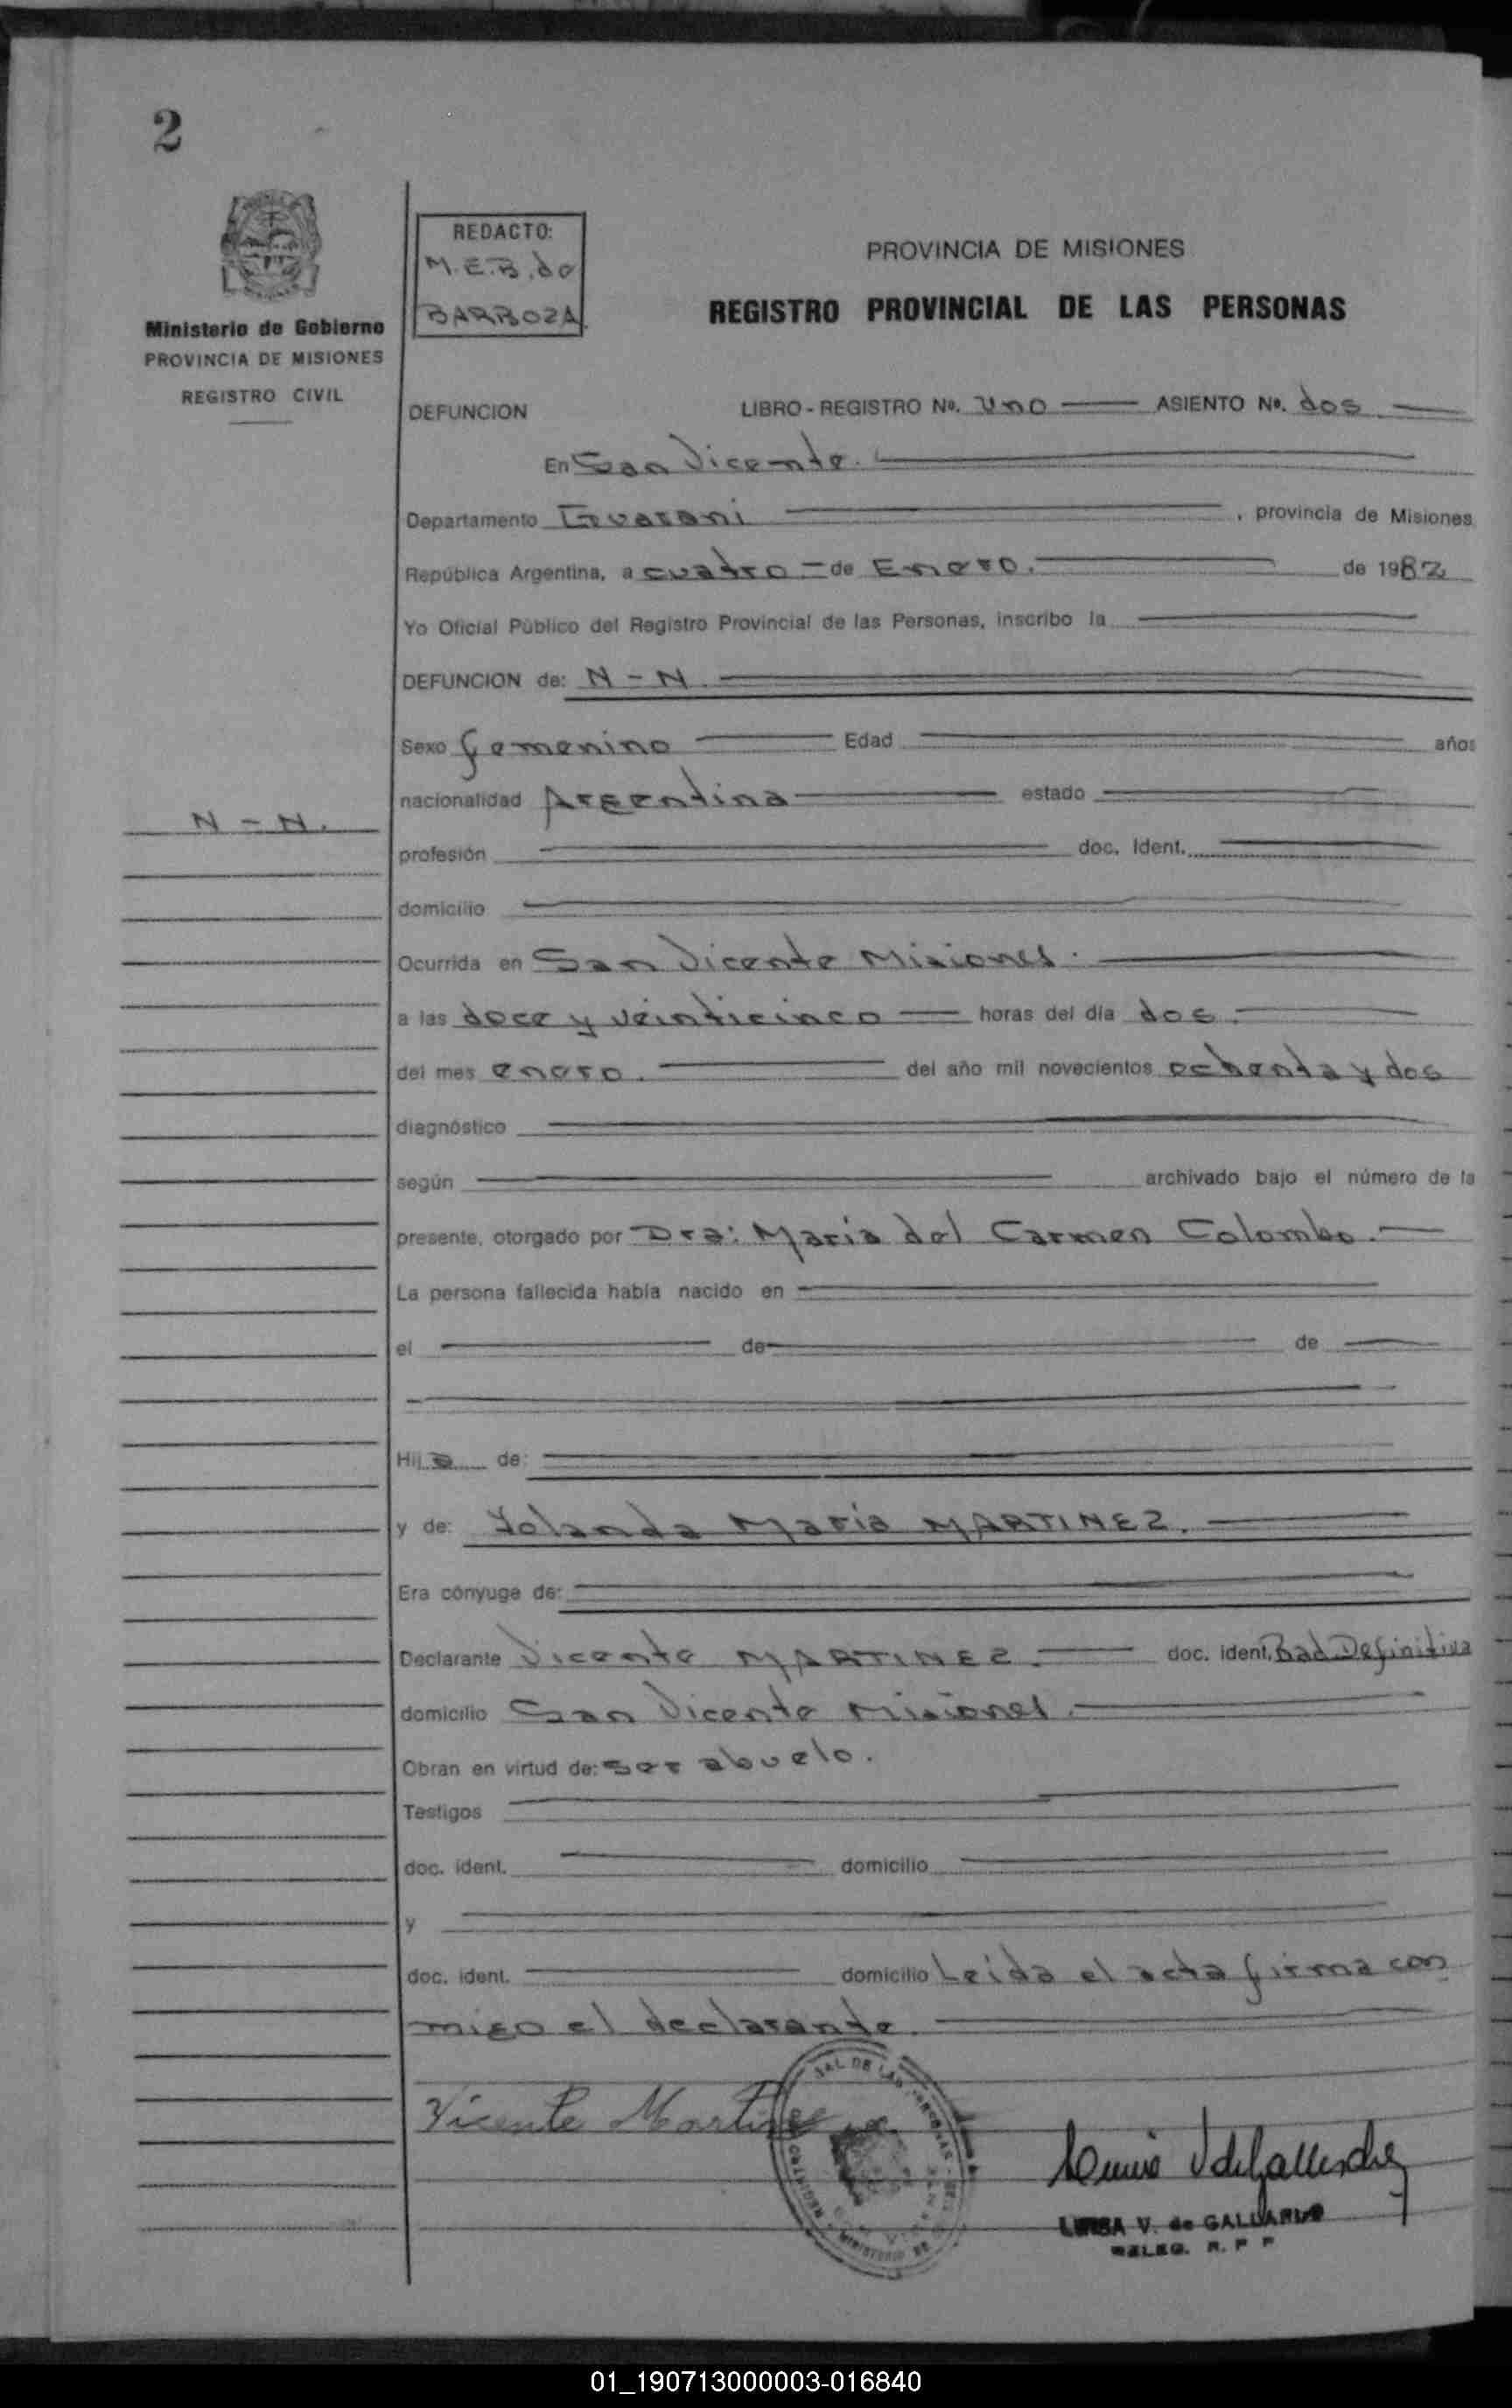 2
Ministerio de Gobierno
PROVINCIA DE MISIONES
REGISTRO CIVIL
REDACTO:
M.E.B. de
BARBOZA.
PROVINCIA DE MISIONES
REGISTRO PROVINCIAL DE LAS PERSONAS
DEFUNCION LIBRO - REGISTRO No. Uno ASIENTO No. dos
En San Vicente.
Departamento Guarani , provincia de Misiones
República Argentina, a cuatro - de Enero. de 1982
Yo Oficial Público del Registro Provincial de las Personas, inscribo la
DEFUNCION de: N - N.
Sexo femenino Edad años
nacionalidad Argentina estado
N - N.
profesión doc. Ident.
domicilio
Ocurrida en San Vicente Misiones.
a las doce y veinticinco horas del día dos.
del mes enero. del año mil novecientos ochenta y dos
diagnóstico
según archivado bajo el número de la
presente, otorgado por Dra: Maria del Carmen Colombo.
La persona fallecida había nacido en
el de de
Hija de:
y de: Yolanda Maria MARTINEZ.
Era cónyuge de:
Declarante Vicente MARTINEZ. doc. ident. Bad Definitiva
domicilio San Vicente Misiones.
Obran en virtud de: ser abuelo.
Testigos
doc. ident. domicilio
y
doc. ident. domicilio Leida el acta firma con
migo el declarante.
Vicente Martinez
LUISA V. de GALLARDO
DELEG. R. P P
01_190713000003-016840